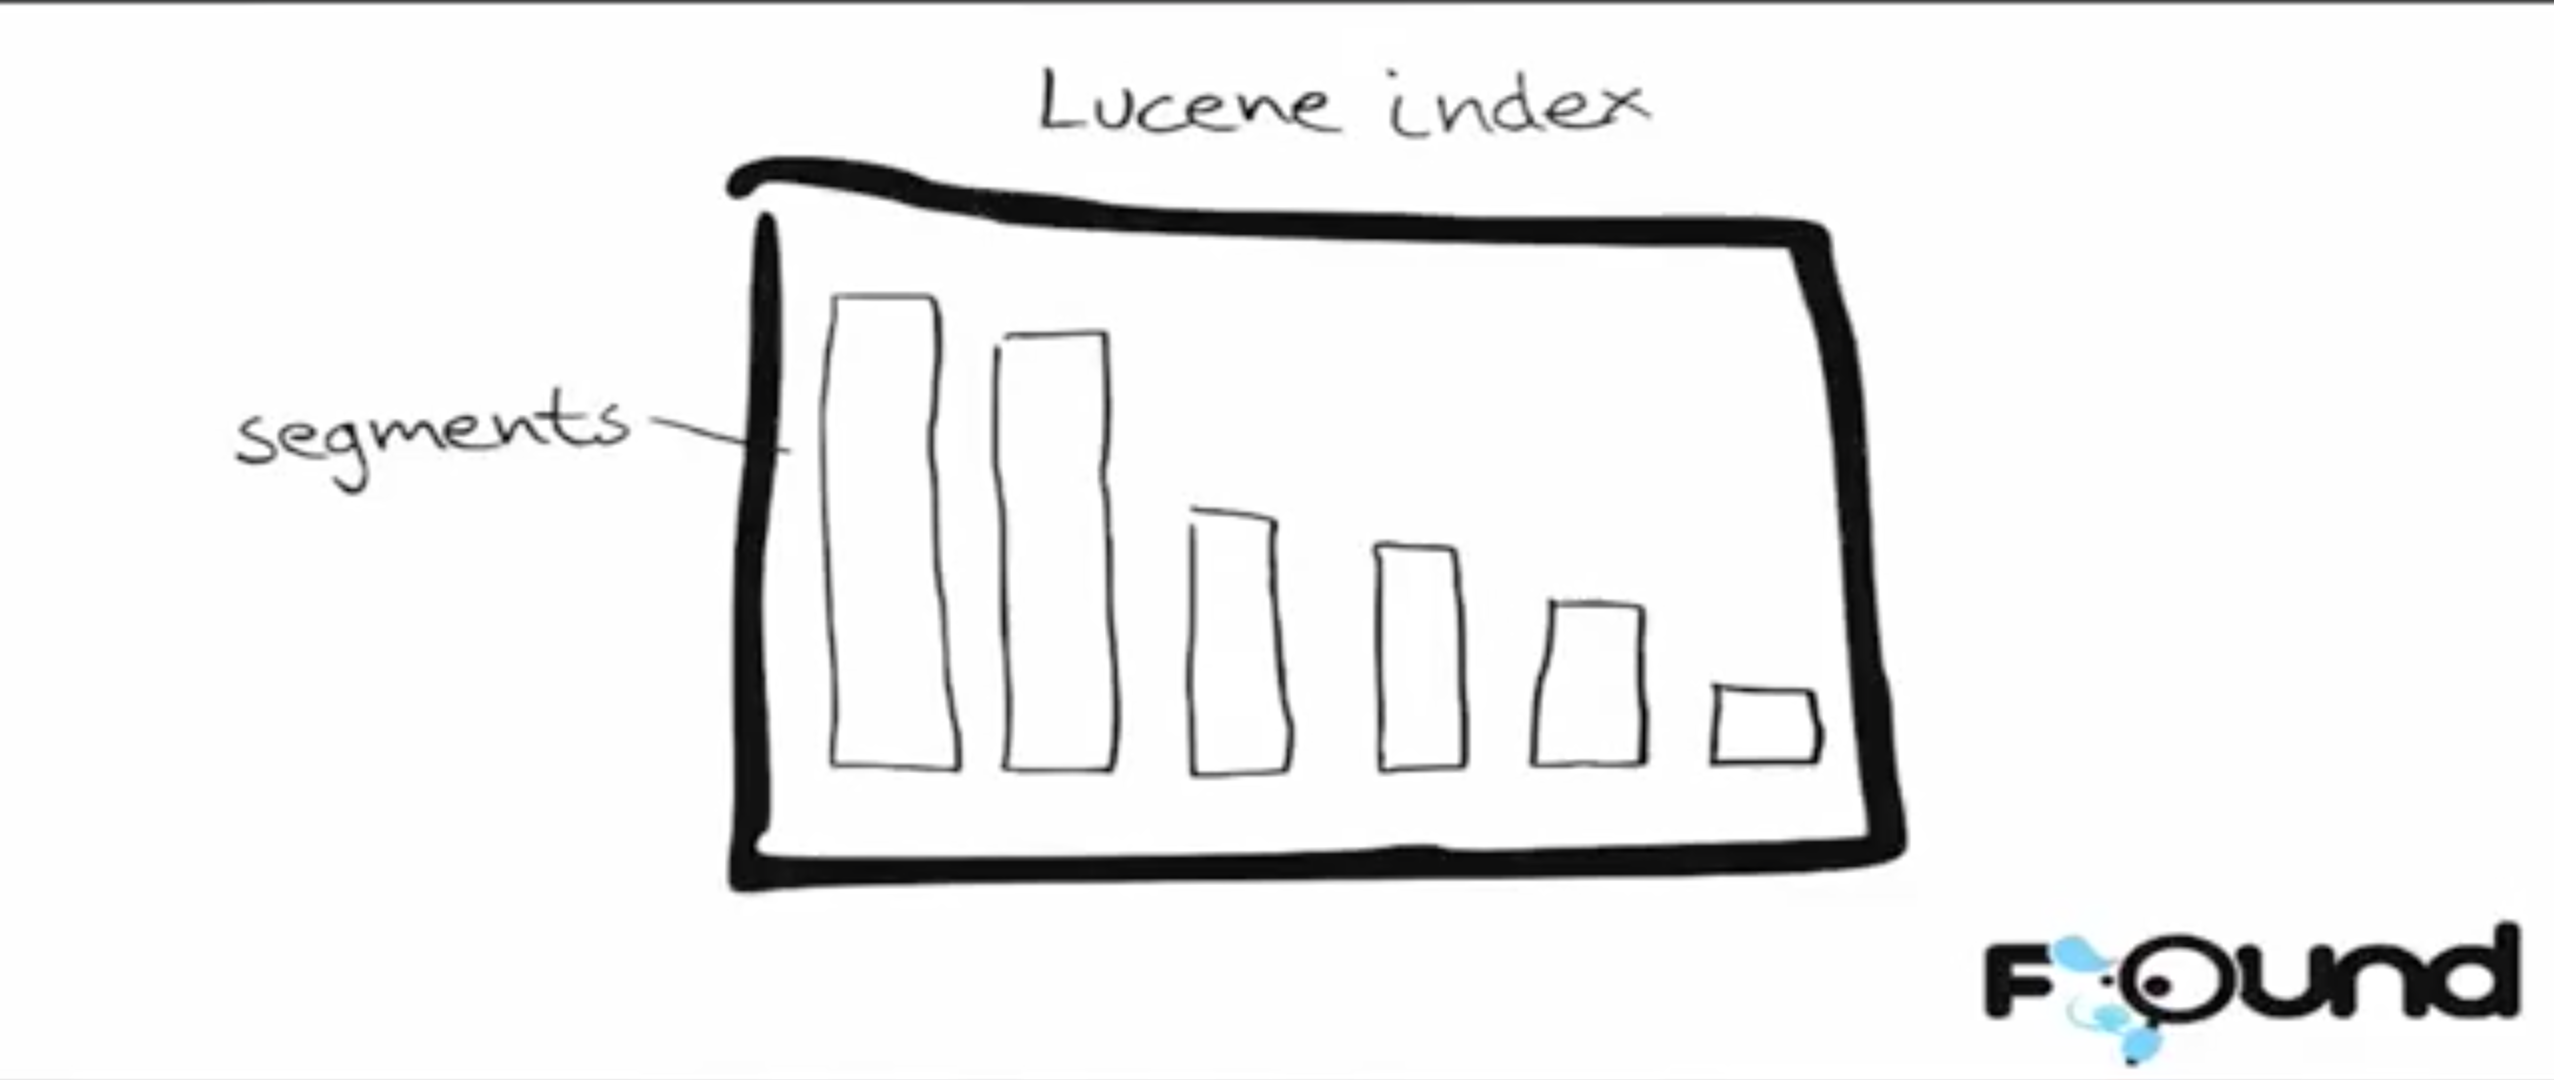 Lucene index
segments
Found